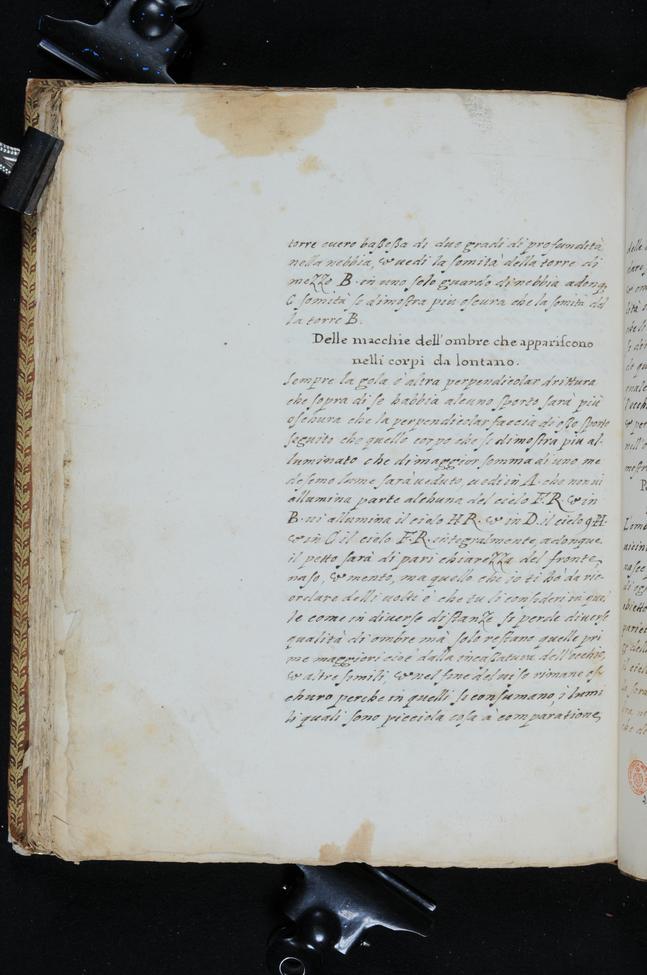 torre overo baſſeſſa di due gradi di profundità,
nella nebbia, & vedi la ſomità della torre di
mezzo B. in uno ſolo guardo di nebbia adonq.
C ſomità ſi dimoſtra più oſcura che la ſomità del
la torre B.
Delle macchie dell'ombre che appariſcono
nelli corpi da lontano.
Sempre la gola ò altra perpendicolar drittura
che ſopra di ſe habbia alcuno ſporto ſarà più
oſchura che la perpendicular faccia di eſſo ſporto
ſeguito che quello corpo che ſi dimoſtra più al-
luminato che di maggior ſomma di uno me
deſimo lume ſarà veduto, vedi in A. che non vi
allumina parte alchuna del cielo F.R. & in
B. vi allumina il cielo H.R. & in D. il cielo
& in C il cielo F.R. integralmente, adonque
il petto ſarà di pari chiarezza del fronte,
naſo, & mento, ma quello che io ti hò da ric-
ordare delli volti è che tu li conſideri in qua
le come in diverſe diſtanze ſi perde diverſe
qualità di ombre mà ſolo reſtano quelle pri
me maggiori cioè dalla incaſtatura dell'occhio,
& altre ſimili, & nel fine del viſo rimane oſ-
churo perche in quelli ſi conſumano, i lumi
li quali ſono picciola coſa à comparatione,